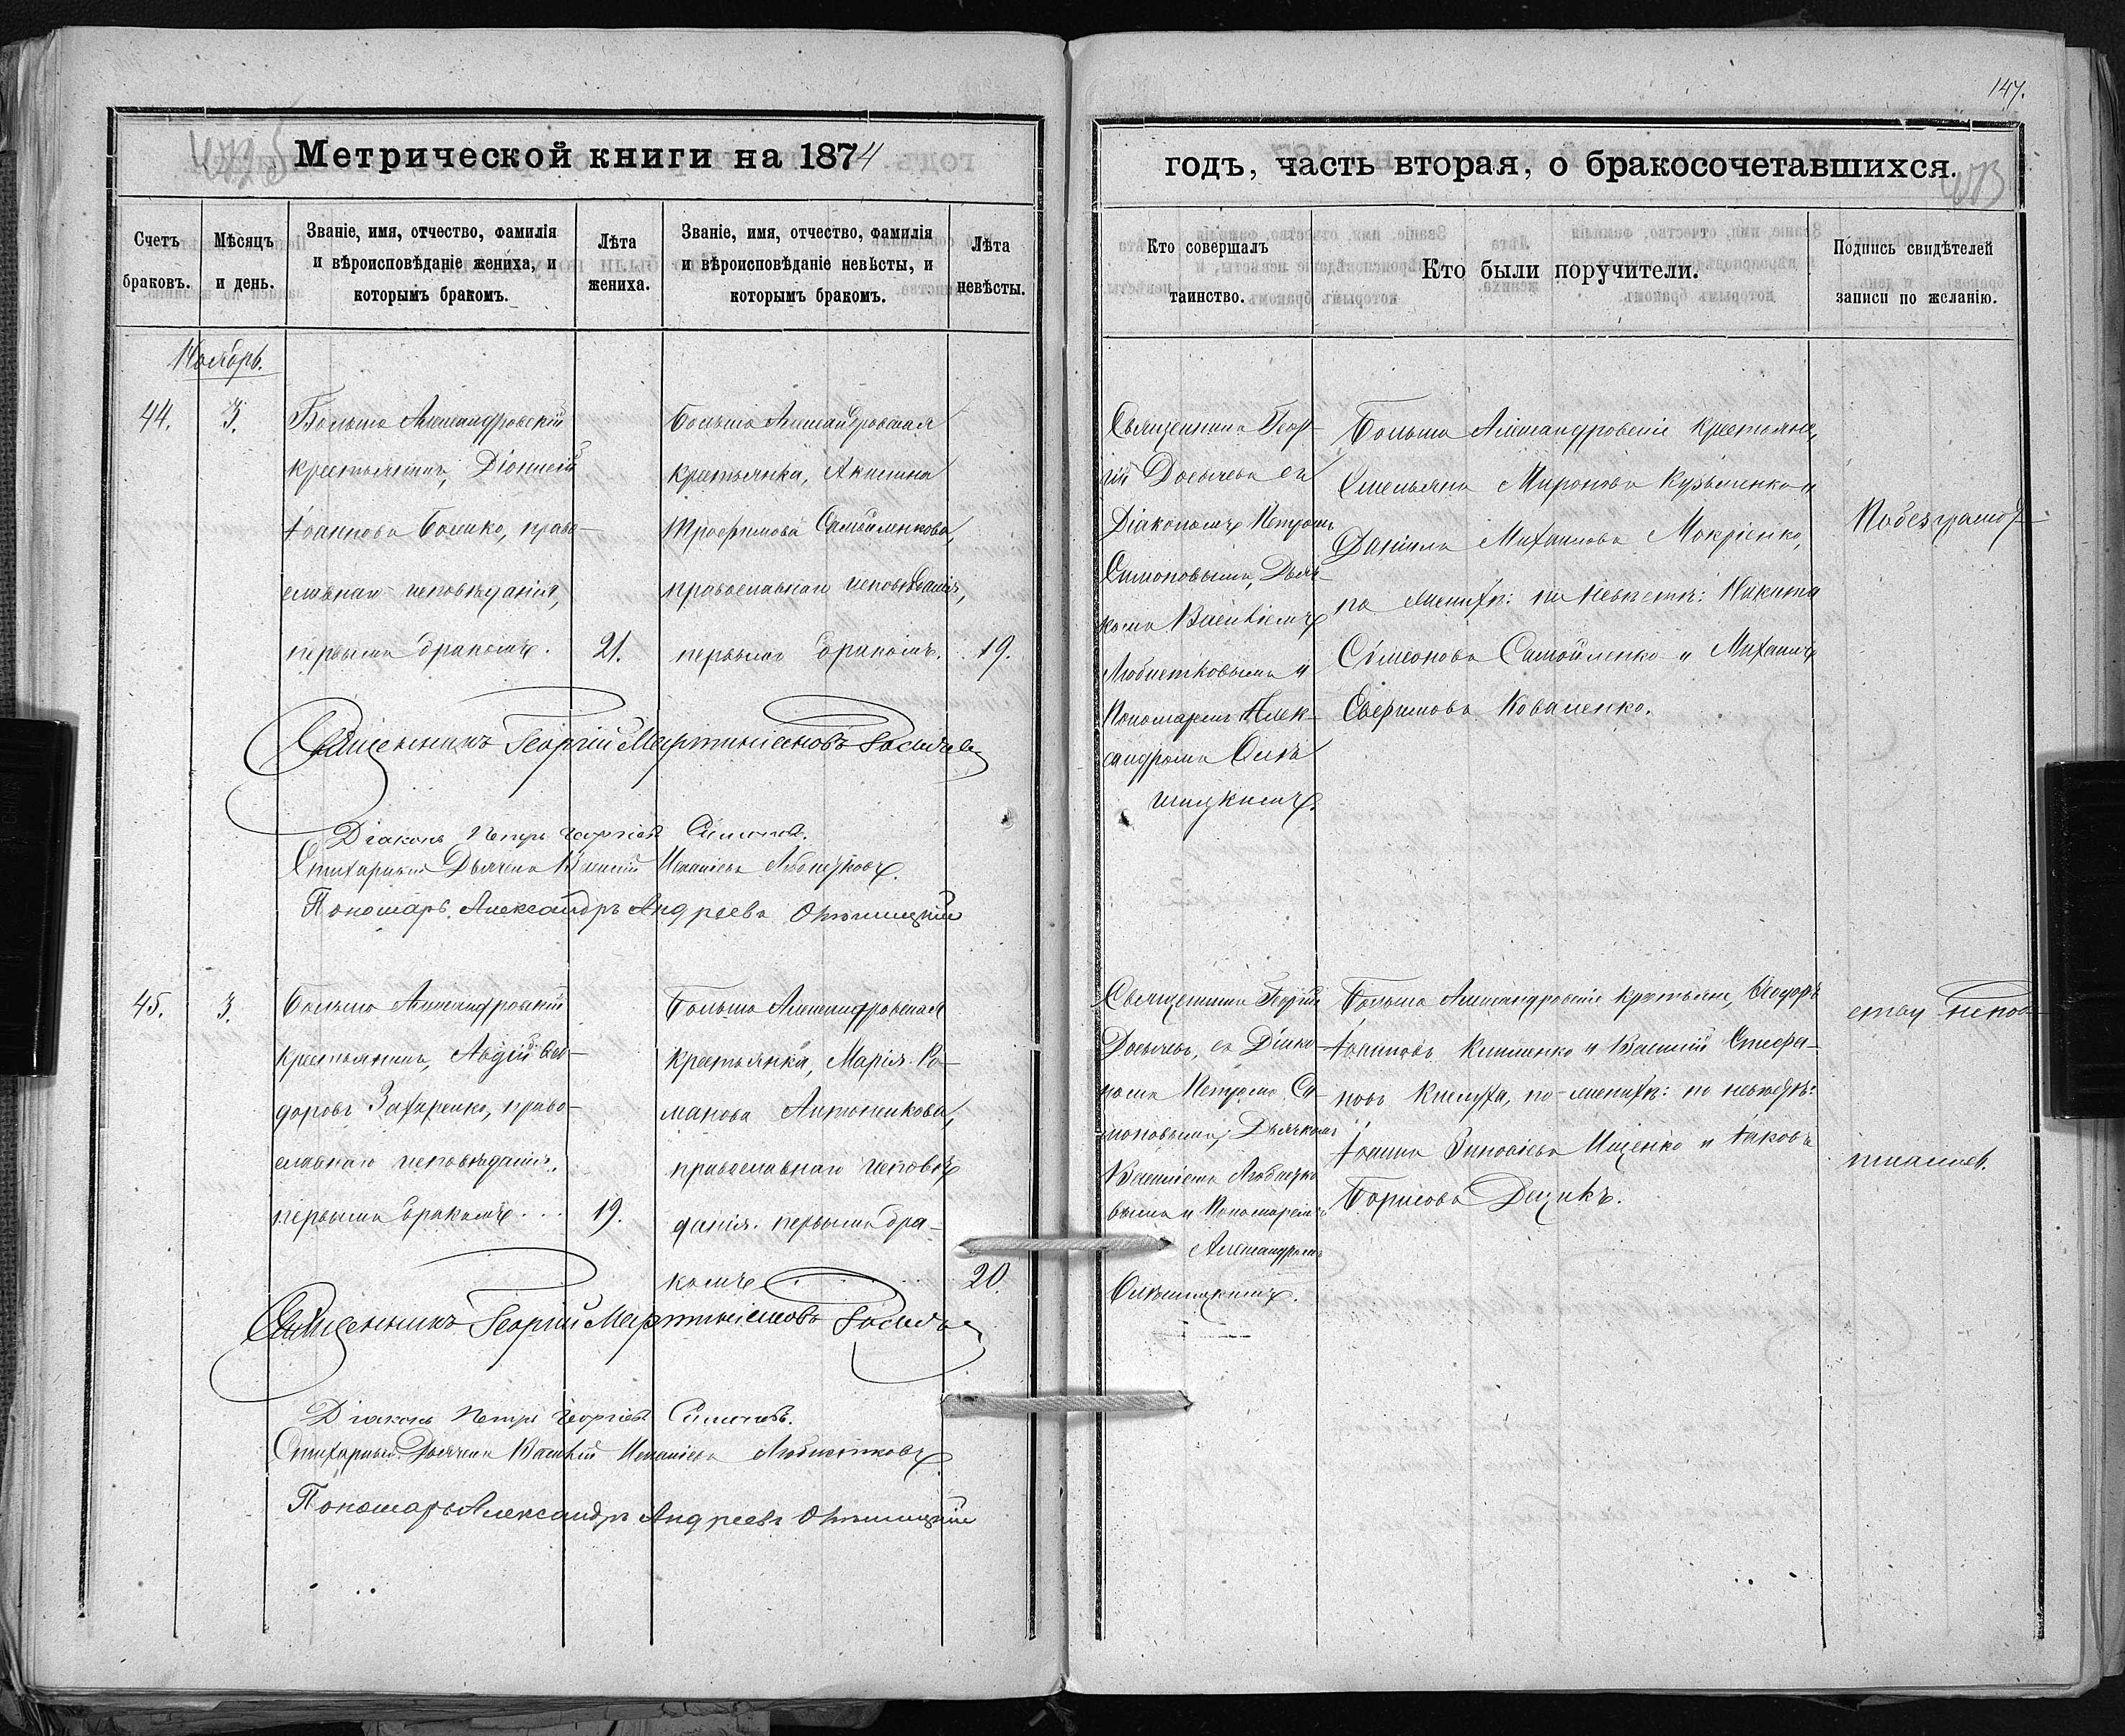 147.
Метрической книги на 1874
годъ, часть вторая, о бракосочетавшихся.
Счетъ
браковъ.
Мѣсяцъ
и день.
Званіе, имя, отчество, фамилія
и вѣроисповѣданіе жениха, и
которымъ бракомъ.
Лѣта
жениха.
Званіе, имя, отчество, фамилія
и вѣроисповѣданіе невѣсты, и
которымъ бракомъ.
Лѣта
невѣсты.
Кто совершалъ
таинство.
Кто были поручители.
Подпись свидѣтелей
записи по желанію.
Ноябрь.
44.
3.
Больше Александровскій
крестьянинъ, Діонисій
Іоанновъ Бошко, право-
славнаго исповѣданія,
первымъ бракомъ.
21.
Больше Александровская
крестьянка, Акилина
Трофимова Самойленкова,
православнаго исповѣданія,
первымъ бракомъ.
19.
Священникъ Геор-
гій Досычевъ съ
Діакономъ Петромъ
Симоновымъ, Дьяч-
комъ Василіемъ
Любистковымъ и
Пономаремъ Алек-
сандромъ
Больше Александровскіе крестьяне,
Емельянъ Мироновъ Кузьменко и
Даніилъ Михаиловъ Мокріенко,
по женихѣ: по невѣстѣ: Никита
Симеоновъ Самойленко и Михаилъ
Евфимовъ Коваленко.
По безграмот-
Священникъ Георгій Мартиніановъ
Діаконъ Петръ Георгіевъ Симоновъ.
Стихарный Дьячекъ Василій Любистковъ.
Пономарь Александръ Андреевъ
45.
3.
Больше Александровскій
крестьянинъ, Авдій Ѳео-
доровъ Захаренко, право-
славнаго исповѣданія,
первымъ бракомъ
19.
Больше Александровская
крестьянка, Марія Ро-
манова Антоненкова,
православнаго исповѣ-
данія. первымъ бра-
комъ
20.
Священникъ Георгій
Досычевъ, съ Діако-
номъ Петромъ Си-
моновымъ, Дьячкомъ
Василіемъ Любистко-
вымъ и Пономаремъ
Александромъ
Больше Александровскіе крестьяне, Ѳеодоръ
Іоанновъ и Василій Стефа-
новъ по женихѣ: по невѣстѣ:
Іоаннъ Зиновіевъ Ищенко и Іаковъ
Борисовъ
ству непод-
писались.
Священникъ Георгій Мартиніановъ
Діаконъ Петръ Георгіевъ Симоновъ.
Стихарный Дьячекъ Василій Любистковъ
Пономарь Александръ Андреевъ